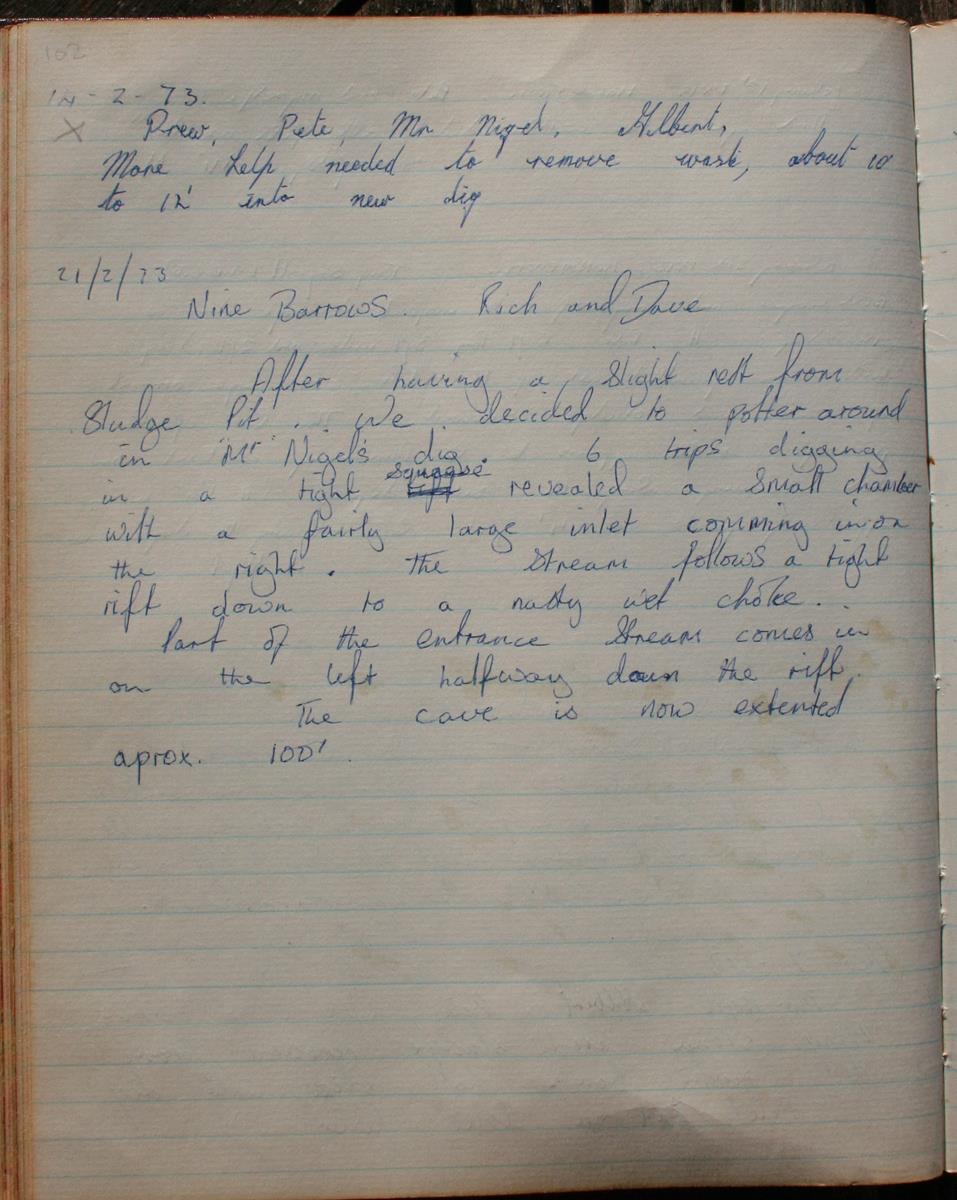 102
14-2-73.
X Prew, Pete, Mr Nigel, Gilbert,
More help needed to remove waste, about 10'
to 12' into new dig
21/2/73
Nine Barrows. Rich and Dave
After having a slight rest from
Sludge Pit. We decided to potter around
in "Mr" Nigel's dig. 6 trips digging
in a tight squeeze revealed a small chamber
with a fairly large inlet comming in on
the right. The stream follows a tight
rift down to a nasty wet choke.
Part of the entrance stream comes in
on the left halfway down the rift.
The cave is now extented
aprox. 100'.